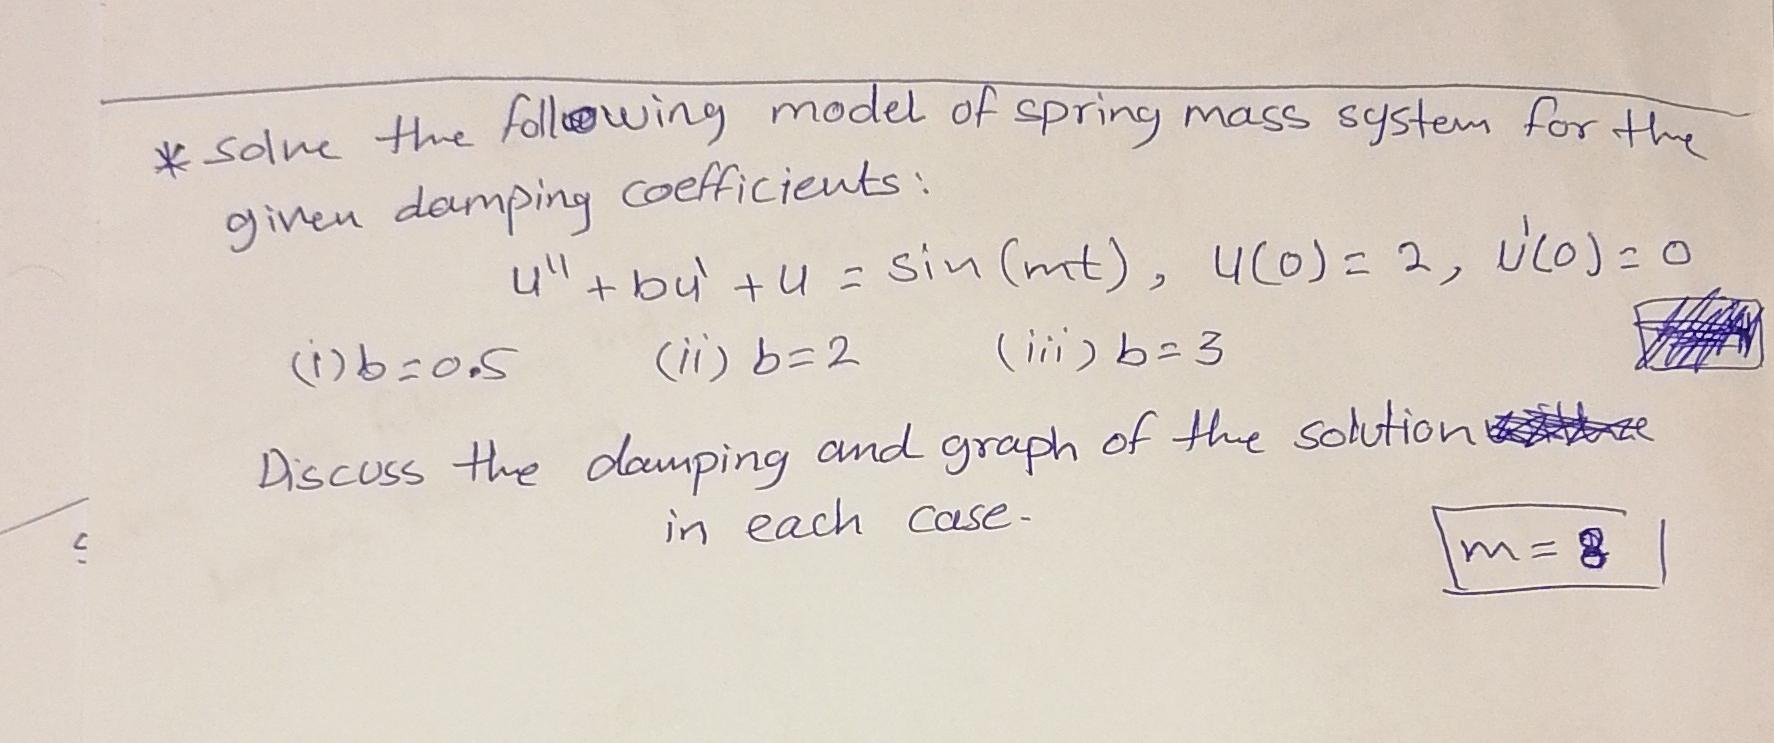 * Solve the following model of spring mass system for the
given damping coefficients:
u'' + bu' + u = sin(mt), u(0) = 2, u'(0) = 0
(i) b = 0.5 (ii) b = 2 (iii) b = 3
Discuss the damping and graph of the solution
in each case.
m = 8